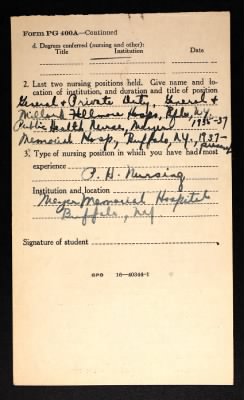 Form PG 400A—Continued
d. Degrees conferred (nursing and other):
Title Institution Date
2. Last two nursing positions held. Give name and lo-
cation of institution, and duration and title of position
General & Private duty, General &
Millard Fillmore Hosp, Bflo, N.Y. 1936-37
Public Health Nurse, Meyer
Memorial Hosp, Buffalo, N.Y. 1937-present
3. Type of nursing position in which you have had most
experience
P. H. Nursing
Institution and location
Meyer Memorial Hospital
Buffalo, N.Y.
Signature of student
GPO 16—40344-1